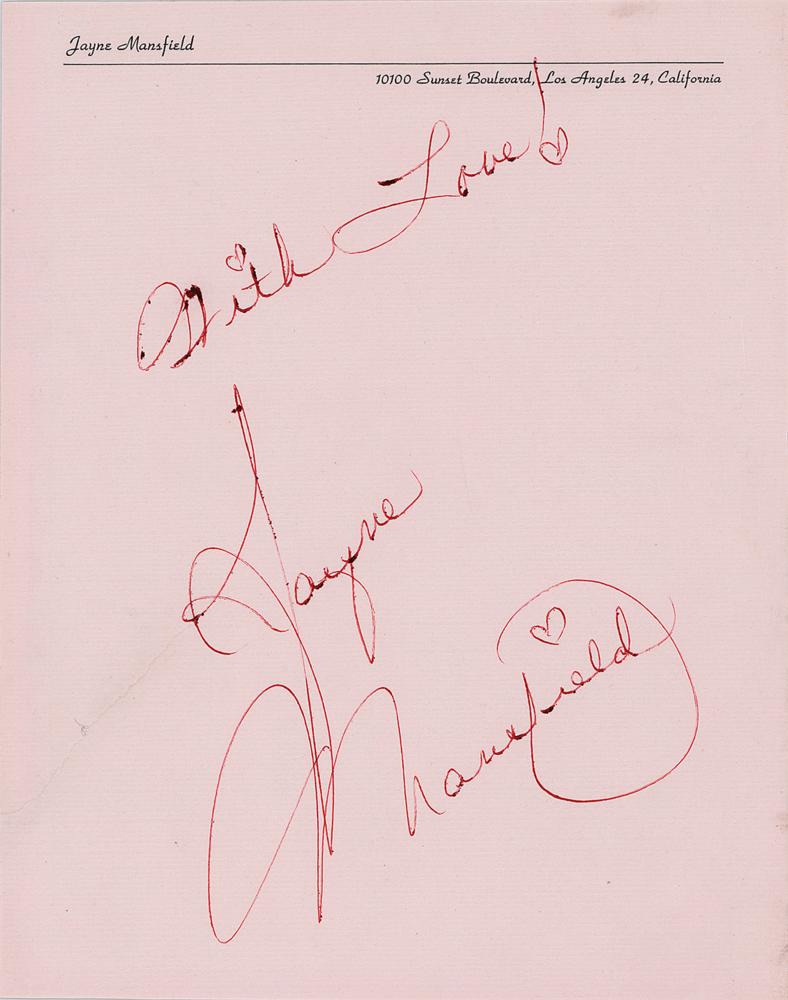 Jayne Mansfield
10100 Sunset Boulevard, Los Angeles 24, California
With Love!
Jayne
Mansfield